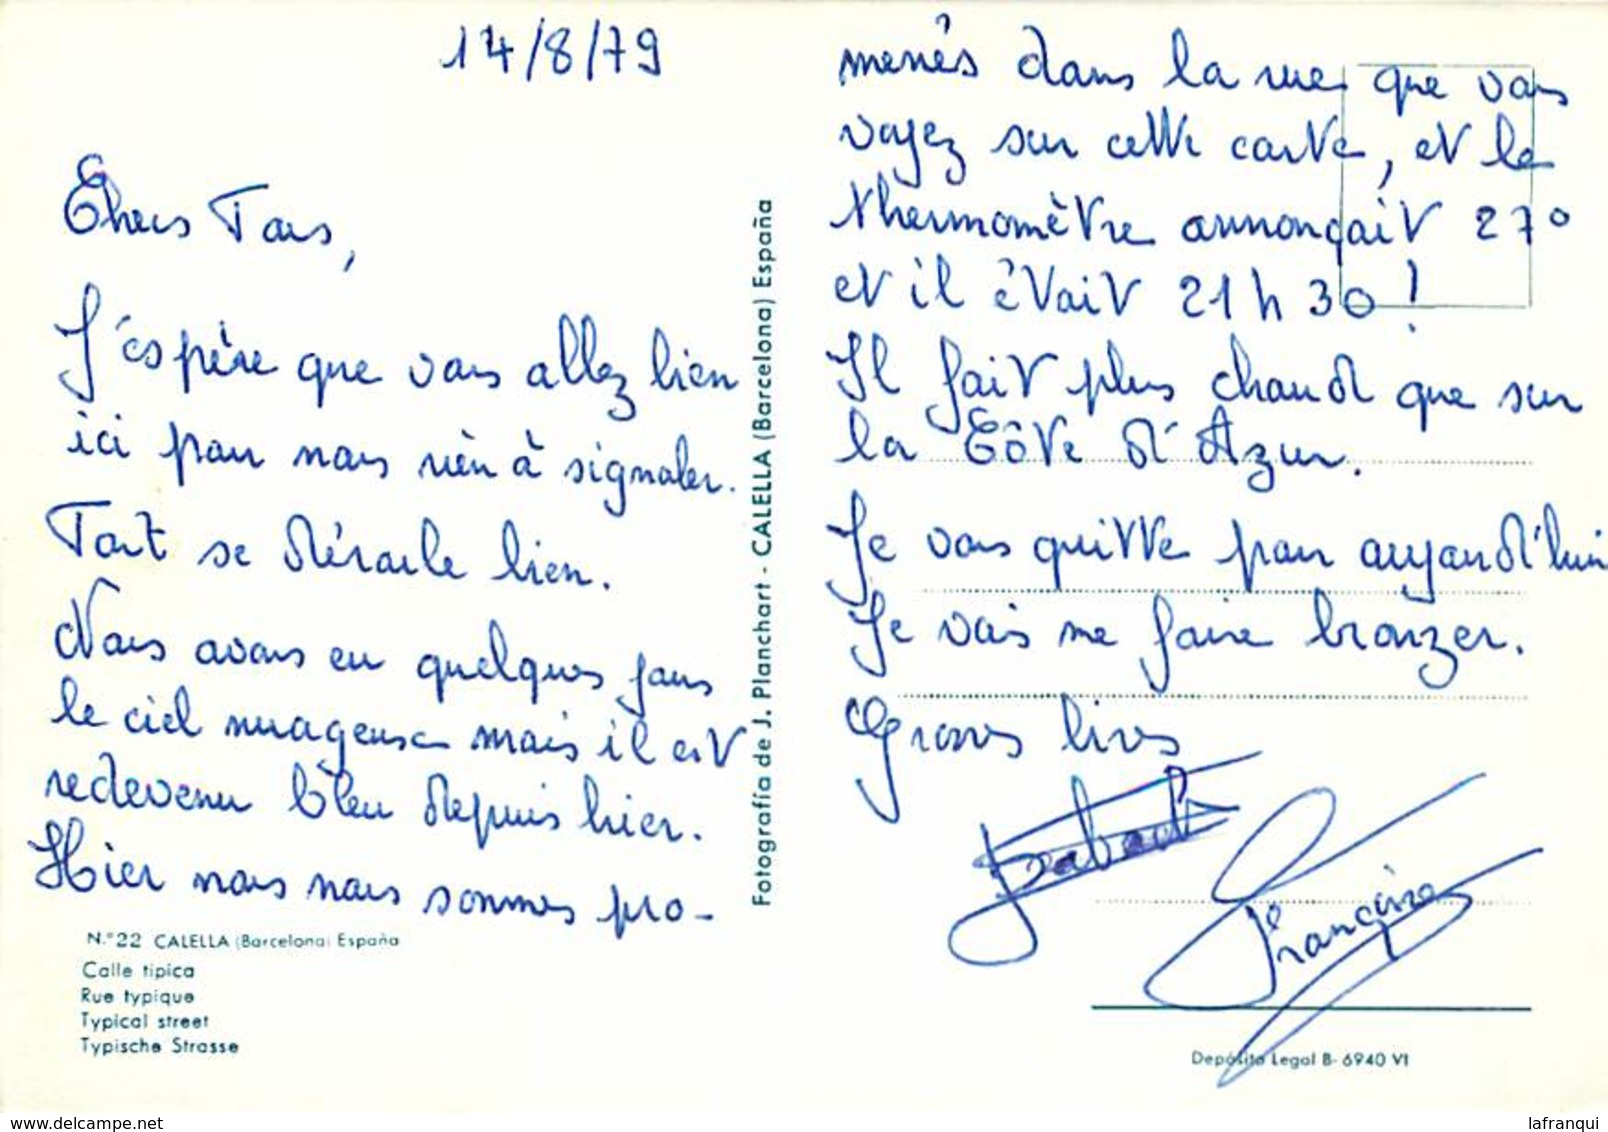 14/8/79
Chers Tous,
J'espère que vous allez bien
ici pour nous rien à signaler.
Tout se déroule bien.
Nous avons eu quelques jours
le ciel nuageux mais il est
redevenu bleu depuis hier.
Hier nous nous sommes pro-
menés dans la rue que vous
voyez sur cette carte, et le
thermomètre annonçait 27°
et il était 21 h 30 !
Il fait plus chaud que sur
la Côte d'Azur.
Je vous quitte pour aujourd'hui
Je vais me faire bronzer.
Grosses bises
Françoise
Fotografía de J. Planchart - CALELLA (Barcelona) España
N.° 22 CALELLA (Barcelona) España
Calle típica
Rue typique
Typical street
Typische Strasse
Depósito Legal B- 6940 VI
lafranqui
www.delcampe.net